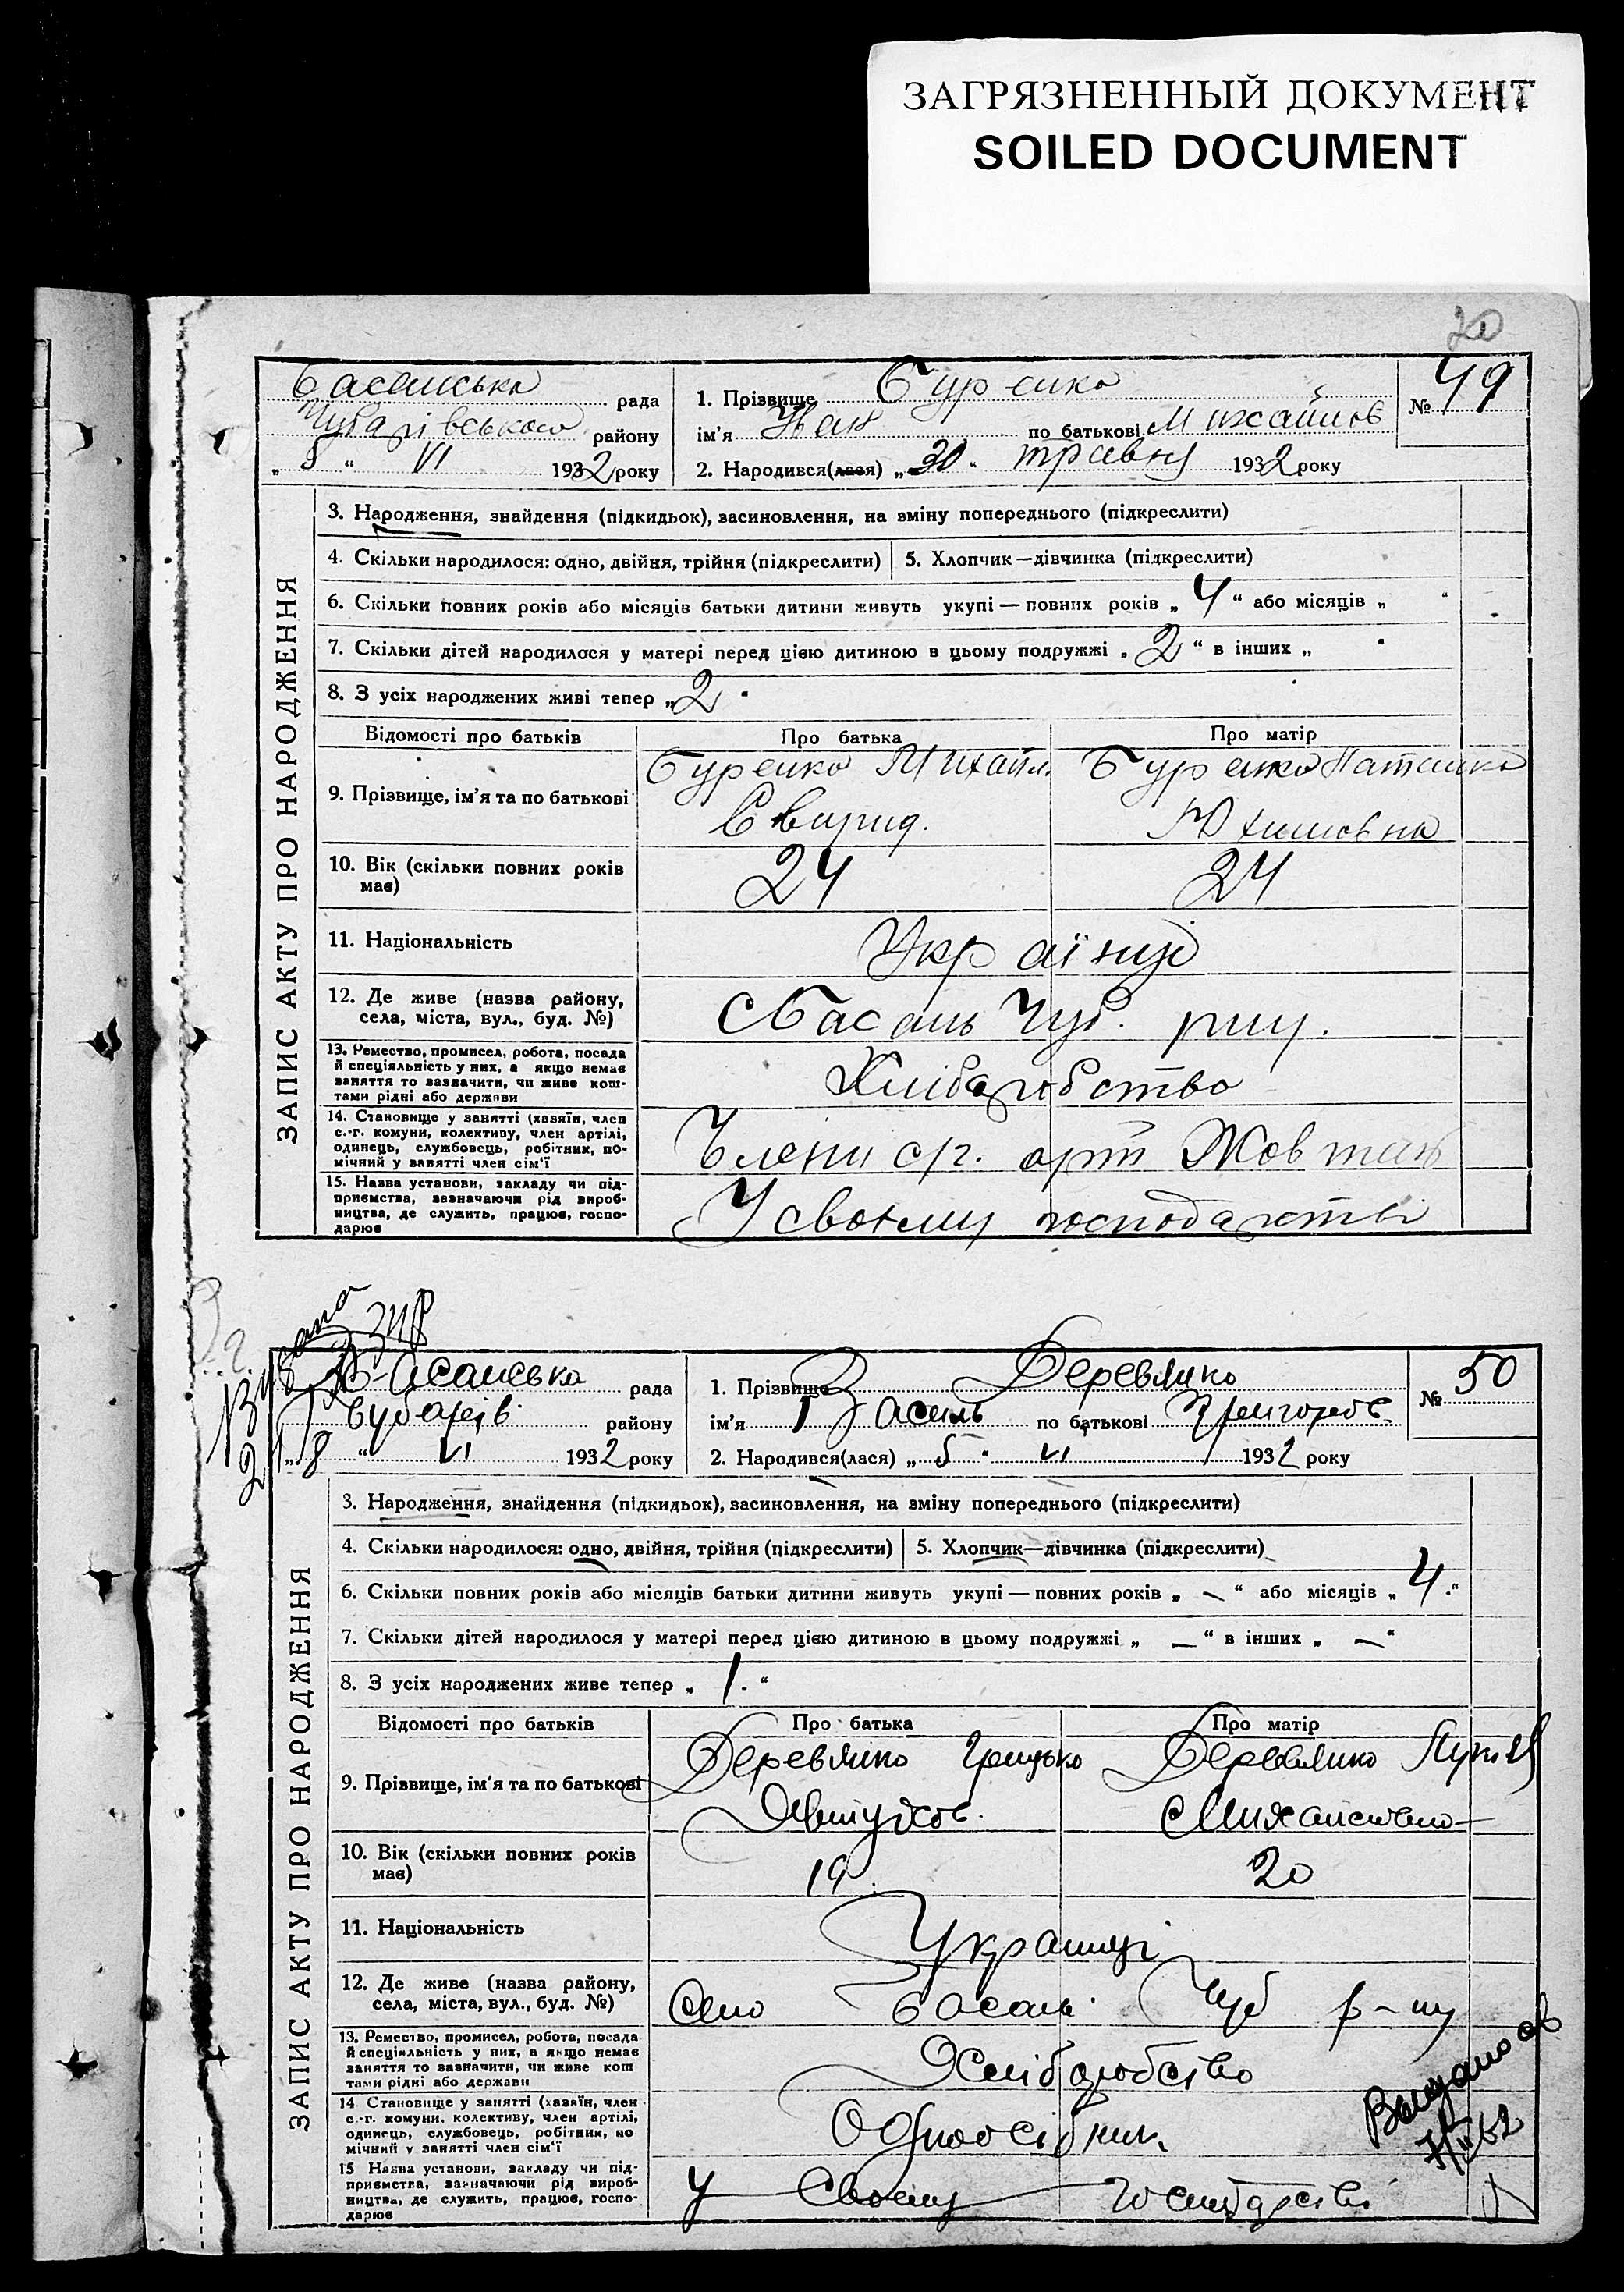 ЗАГРЯЗНЕННЫЙ ДОКУМЕНТ
SOILED DOCUMENT
20
Басанська рада
Чубарівського району
„ 8 “ VI 1932 року
1. Прізвище Буренко
ім’я Іван по батькові Михайлов
2. Народився(лася) „ 30 “ травня 1932 року
№ 49
ЗАПИС АКТУ ПРО НАРОДЖЕННЯ
3. Народження, знайдення (підкидьок), засиновлення, на зміну попереднього (підкреслити)
4. Скільки народилося: одно, двійня, трійня (підкреслити) 5. Хлопчик—дівчинка (підкреслити)
6. Скільки повних років або місяців батьки дитини живуть укупі — повних років „ 4 “ або місяців „ “
7. Скільки дітей народилося у матері перед цією дитиною в цьому подружжі „ 2 “ в інших „ “
8. З усіх народжених живі тепер „ 2 “
Відомості про батьків Про батька Про матір
9. Прізвище, ім’я та по батькові Буренко Михайл. Буренко Наталка
Свирид. Юхимовна
10. Вік (скільки повних років має) 24 24
11. Національність Українці
12. Де живе (назва району, села, міста, вул., буд. №) с Басань Чуб. рну.
13. Ремество, промисел, робота, посада
й спеціяльність у них, а якщо немає
заняття то зазначити, чи живе кош-
тами рідні або держави
Хліборобство
14. Становище у занятті (хазяїн, член
с.-г. комуни, колективу, член артілі,
одинець, службовець, робітник, по-
мічний у занятті член сім’ї
Члени с/г. арт Жовтень
15. Назва установи, закладу чи під-
приємства, зазначаючи рід вироб-
ництва, де служить, працює, госпо-
дарює
У своєму господарстві
Басанська рада
Чубарів. району
„ 8 “ VI 1932 року
1. Прізвище Деревянко
ім’я Василь по батькові Григоров.
2. Народився(лася) „ 5 “ VI 1932 року
№ 50
ЗАПИС АКТУ ПРО НАРОДЖЕННЯ
3. Народження, знайдення (підкидьок), засиновлення, на зміну попереднього (підкреслити)
4. Скільки народилося: одно, двійня, трійня (підкреслити) 5. Хлопчик—дівчинка (підкреслити)
6. Скільки повних років або місяців батьки дитини живуть укупі — повних років „ — “ або місяців „ 4 “
7. Скільки дітей народилося у матері перед цією дитиною в цьому подружжі „ — “ в інших „ — “
8. З усіх народжених живе тепер „ 1 “
Відомості про батьків Про батька Про матір
9. Прізвище, ім’я та по батькові Деревянко Грицько Деревянко
Михайловна
10. Вік (скільки повних років має) 19 20
11. Національність Українці
12. Де живе (назва району, села, міста, вул., буд. №) Село Басань Чуб р-ну
13. Ремество, промисел, робота, посада
й спеціяльність у них, а якщо немає
заняття то зазначити, чи живе кош
тами рідні або держави
Хліборобство
14 Становище у занятті (хазяїн, член
с.-г. комуни, колективу, член артілі,
одинець, службовець, робітник, по
мічний у занятті член сім’ї
Одноосібник
15 Назва установи, закладу чи під-
приємства, зазначаючи рід вироб-
ництва, де служить, працює, госпо-
дарює
У своєму господарстві